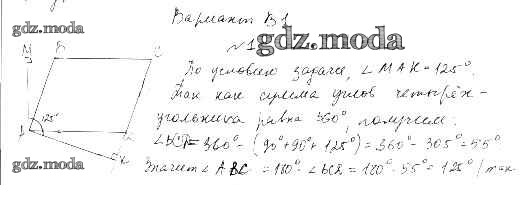 Вариант В1
gdz.moda
№1
gdz.moda
М В С
По условию задачи, ∠MAK=125°.
Так как сумма углов четырёх-
угольника равна 360°, получим:
125°
= 360° - (90°+90°+125°) = 360° - 305° = 55°
К
gdz.moda
Значит ∠ABC = 180° - = 180° - 55° = 125° /так